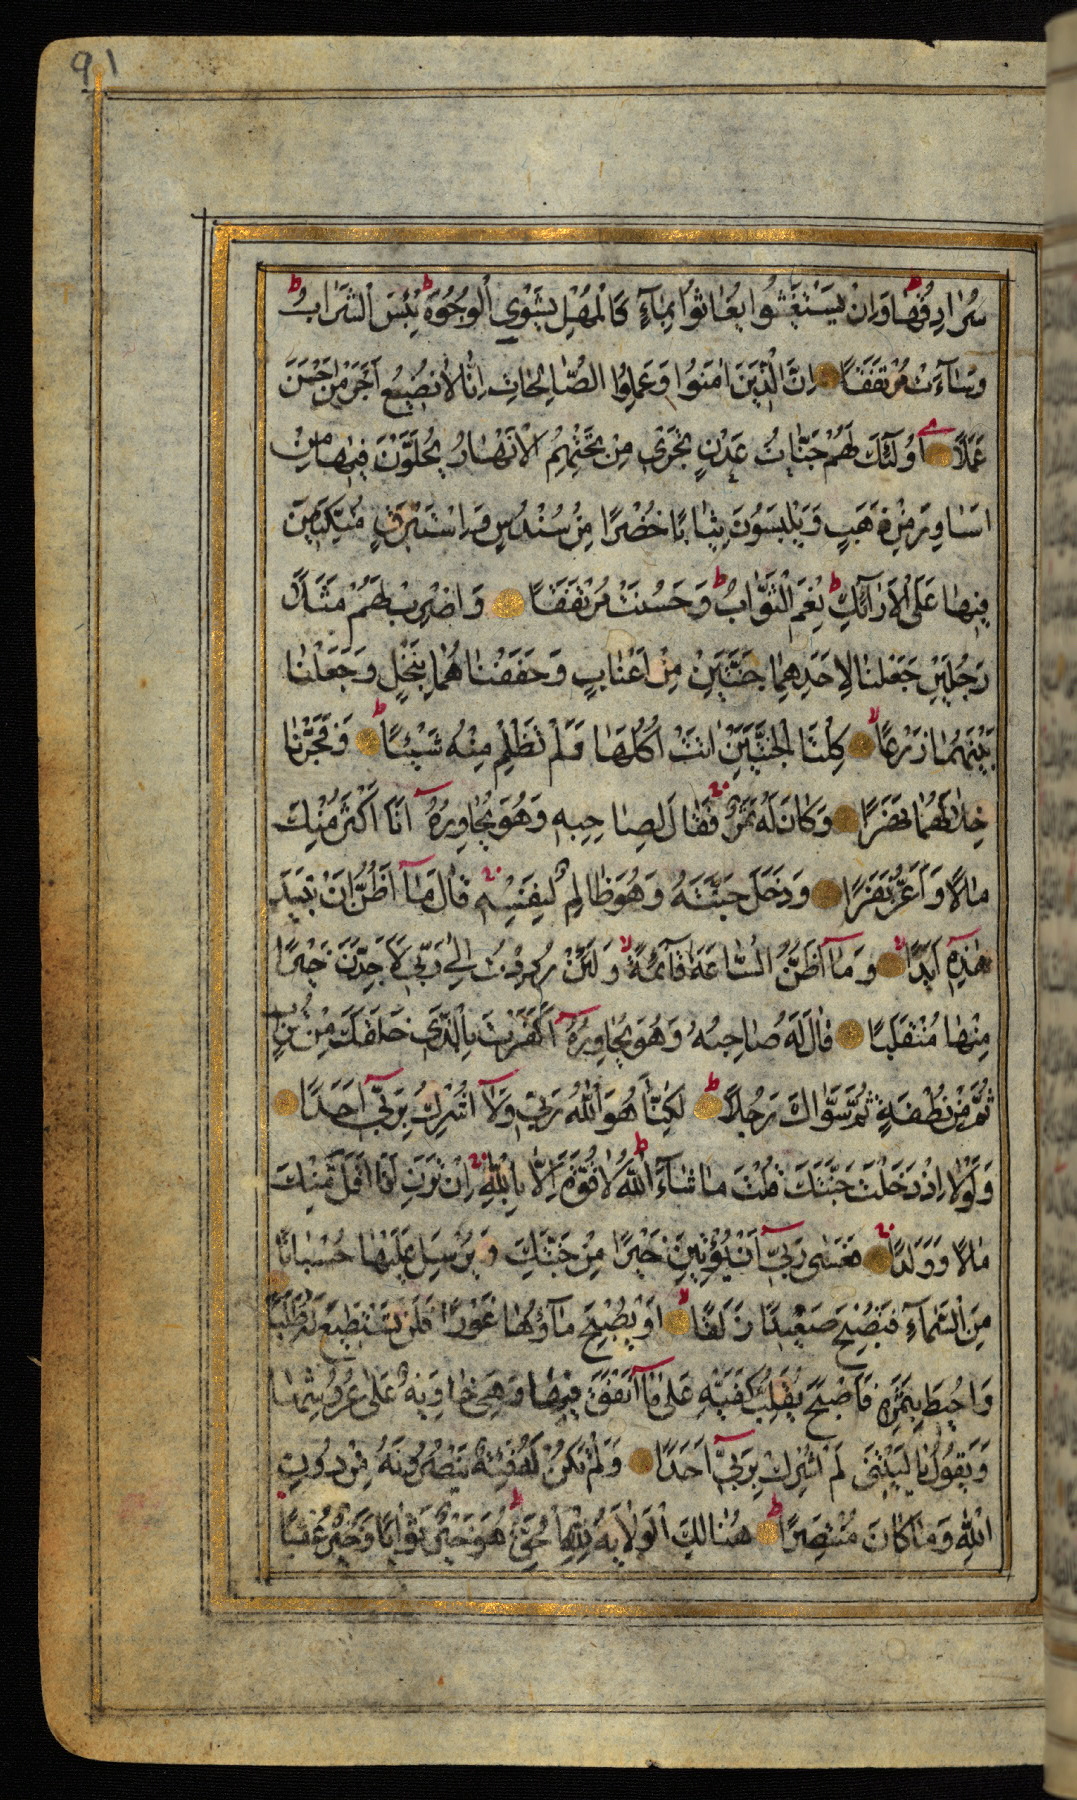 91
سُرَادِقُهَا وَاِنْ يَسْتَغٖيثُوا يُغَاثُوا بِمَآءٍ كَالْمُهْلِ يَشْوِي الْوُجُوهَ بِئْسَ الشَّرَابُ
وَسَآءَتْ مُرْتَفَقًا اِنَّ الَّذٖينَ اٰمَنُوا وَعَمِلُوا الصَّالِحَاتِ اِنَّا لَا نُضٖيعُ اَجْرَ مَنْ اَحْسَنَ
عَمَلًا اُولٰٓئِكَ لَهُمْ جَنَّاتُ عَدْنٍ تَجْرٖي مِنْ تَحْتِهِمُ الْاَنْهَارُ يُحَلَّوْنَ فٖيهَا مِنْ
اَسَاوِرَ مِنْ ذَهَبٍ وَيَلْبَسُونَ ثِيَابًا خُضْرًا مِنْ سُنْدُسٍ وَاِسْتَبْرَقٍ مُتَّكِـٖٔينَ
فٖيهَا عَلَى الْاَرَآئِكِ نِعْمَ الثَّوَابُ وَحَسُنَتْ مُرْتَفَقًا وَاضْرِبْ لَهُمْ مَثَلًا
رَجُلَيْنِ جَعَلْنَا لِاَحَدِهِمَا جَنَّتَيْنِ مِنْ اَعْنَابٍ وَحَفَفْنَاهُمَا بِنَخْلٍ وَجَعَلْنَا
بَيْنَهُمَا زَرْعًا كِلْتَا الْجَنَّتَيْنِ اٰتَتْ اُكُلَهَا وَلَمْ تَظْلِمْ مِنْهُ شَيْئًا وَفَجَّرْنَا
خِلَالَهُمَا نَهَرًا وَكَانَ لَهُ ثَمَرٌ فَقَالَ لِصَاحِبِهٖ وَهُوَ يُحَاوِرُهُ اَنَا اَكْثَرُ مِنْكَ
مَالًا وَاَعَزُّ نَفَرًا وَدَخَلَ جَنَّتَهُ وَهُوَ ظَالِمٌ لِنَفْسِهٖ قَالَ مَآ اَظُنُّ اَنْ تَبٖيدَ
هٰذِهٖٓ اَبَدًا وَمَآ اَظُنُّ السَّاعَةَ قَآئِمَةً وَلَئِنْ رُدِدْتُ اِلٰى رَبّٖي لَاَجِدَنَّ خَيْرًا
مِنْهَا مُنْقَلَبًا قَالَ لَهُ صَاحِبُهُ وَهُوَ يُحَاوِرُهُ اَكَفَرْتَ بِالَّذٖي خَلَقَكَ مِنْ تُرَابٍ
ثُمَّ مِنْ نُطْفَةٍ ثُمَّ سَوَّاكَ رَجُلًا لٰكِنَّا هُوَ اللّٰهُ رَبّٖي وَلَآ اُشْرِكُ بِرَبّٖٓي اَحَدًا
وَلَوْلَا اِذْ دَخَلْتَ جَنَّتَكَ قُلْتَ مَا شَآءَ اللّٰهُ لَا قُوَّةَ اِلَّا بِاللّٰهِ اِنْ تَرَنِ اَنَا اَقَلَّ مِنْكَ
مَالًا وَوَلَدًا فَعَسٰى رَبّٖٓي اَنْ يُؤْتِيَنِ خَيْرًا مِنْ جَنَّتِكَ وَيُرْسِلَ عَلَيْهَا حُسْبَانًا
مِنَ السَّمَآءِ فَتُصْبِحَ صَعٖيدًا زَلَقًا اَوْ يُصْبِحَ مَآؤُهَا غَوْرًا فَلَنْ تَسْتَطٖيعَ لَهُ طَلَبًا
وَاُحٖيطَ بِثَمَرِهٖ فَاَصْبَحَ يُقَلِّبُ كَفَّيْهِ عَلٰى مَآ اَنْفَقَ فٖيهَا وَهِيَ خَاوِيَةٌ عَلٰى عُرُوشِهَا
وَيَقُولُ يَا لَيْتَنٖي لَمْ اُشْرِكْ بِرَبّٖٓي اَحَدًا وَلَمْ تَكُنْ لَهُ فِئَةٌ يَنْصُرُونَهُ مِنْ دُونِ
اللّٰهِ وَمَا كَانَ مُنْتَصِرًا هُنَالِكَ الْوَلَايَةُ لِلّٰهِ الْحَقِّ هُوَ خَيْرٌ ثَوَابًا وَخَيْرٌ عُقْبًا